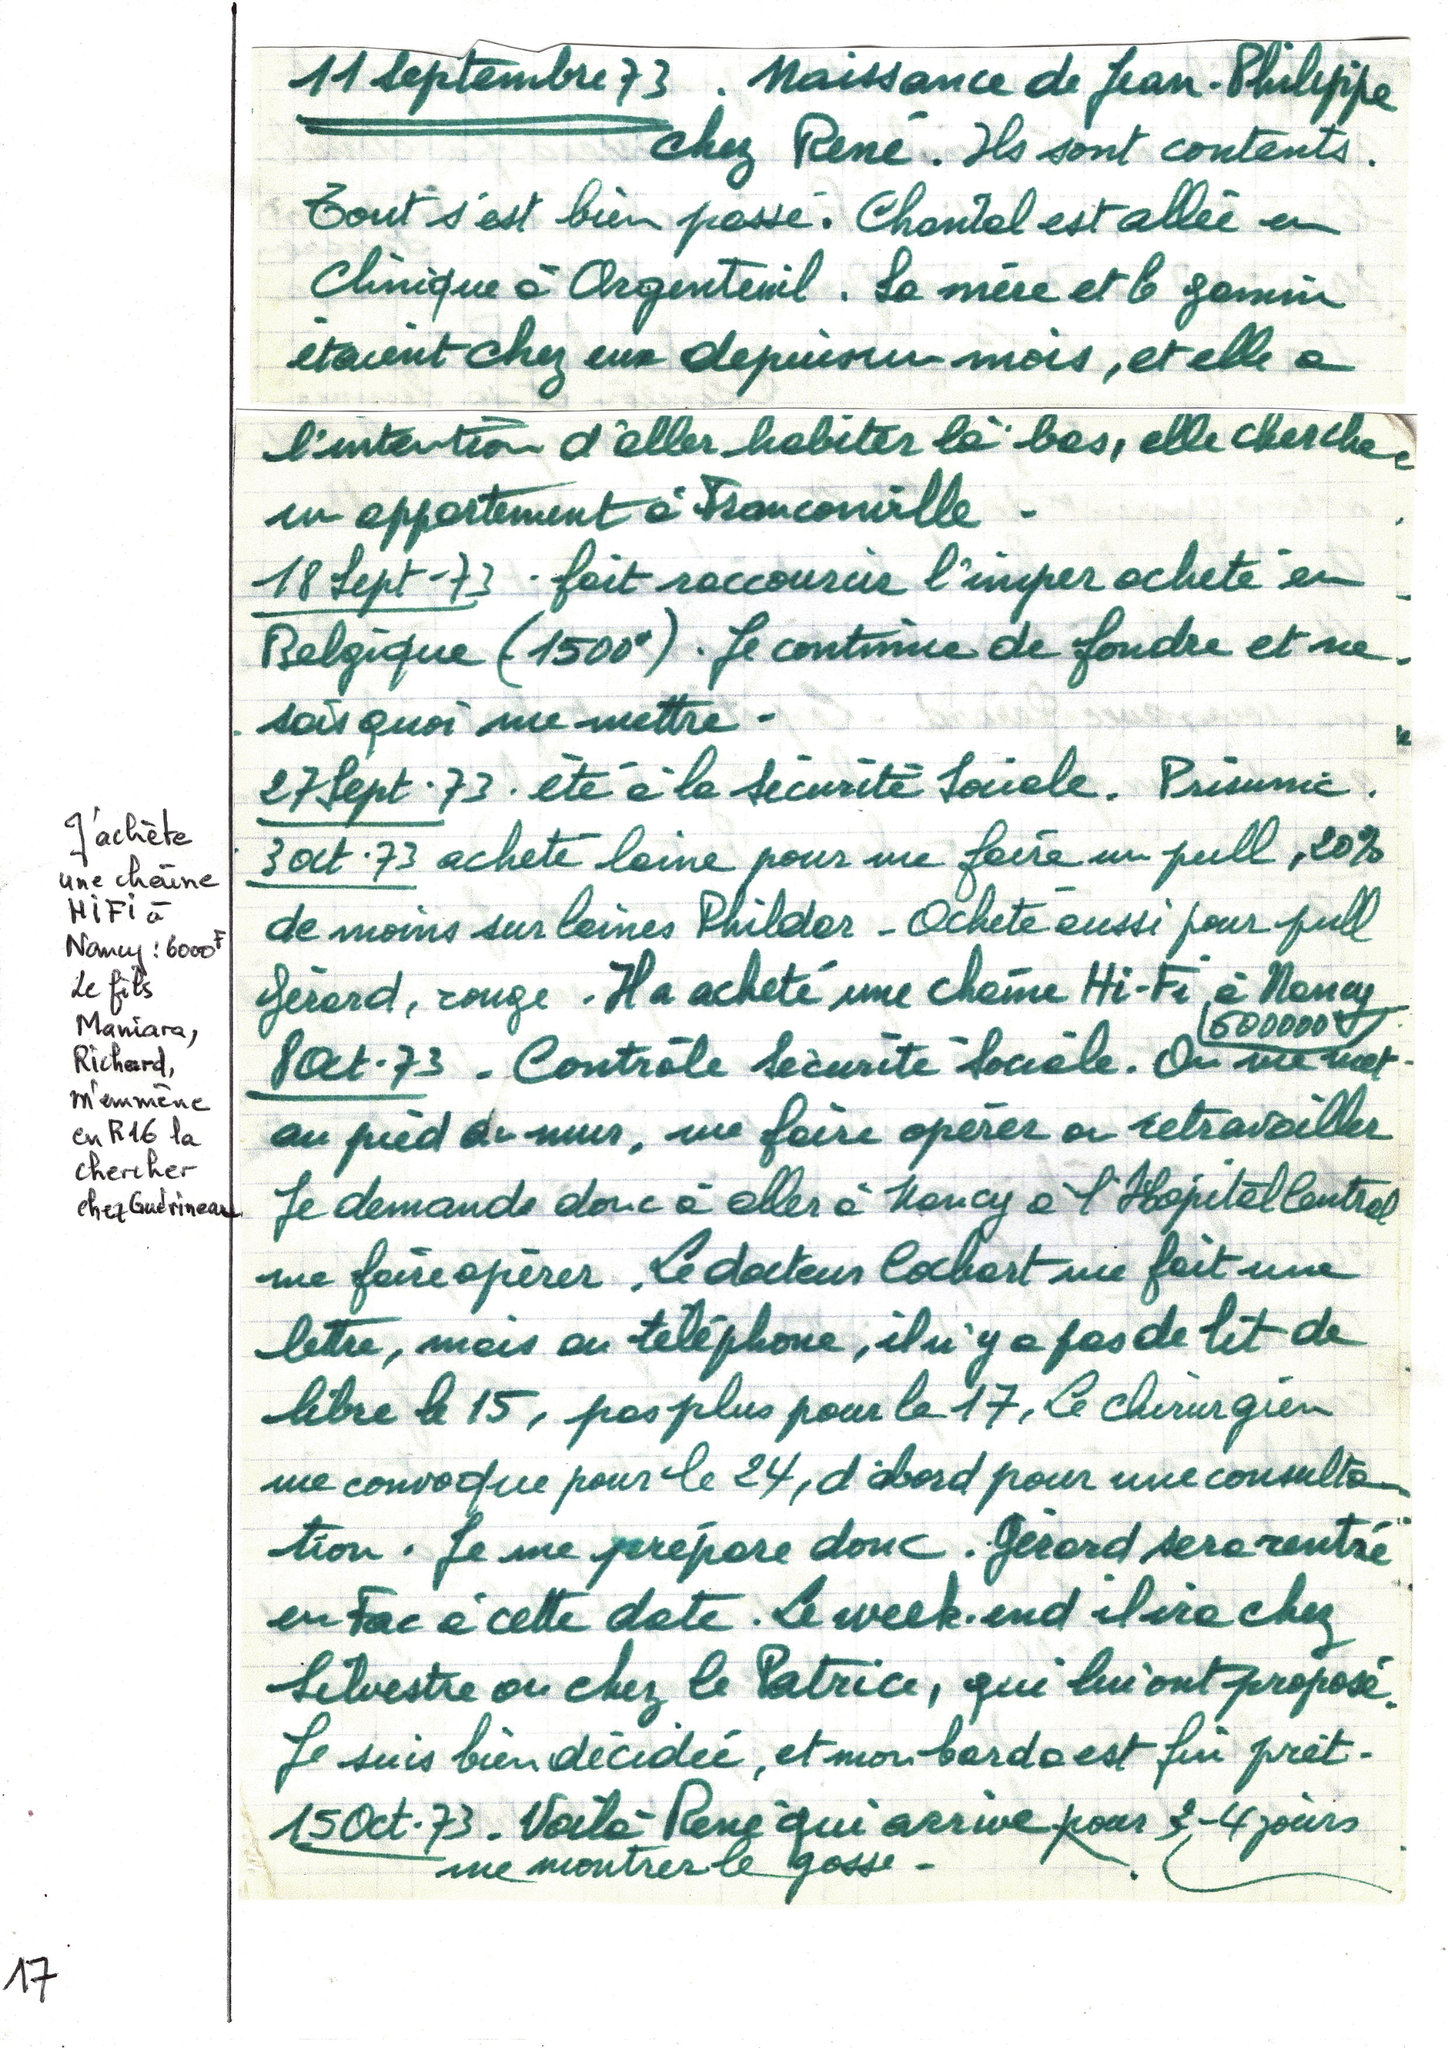 11 Septembre 73. Naissance de Jean-Philippe
chez René. Ils sont contents.
Tout s'est bien passé. Chantal est allée en
Clinique à Argenteuil. La mère et le gamin
étaient chez eux depuis un mois, et elle a
l'intention d'aller habiter là-bas, elle cherche
un appartement à Franconville -
18 Sept-73. fait raccourcir l'imper acheté en
Belgique (1500F). Je continue de fondre et ne
sais quoi me mettre -
27 Sept.73. été à la Sécurité Sociale. Prisunic.
3 Oct.73 acheté laine pour me faire un pull, 20%
de moins sur laines Phildar - Acheté aussi pour pull
Gérard, rouge. Il a acheté une chaîne Hi-Fi à Nancy
600000F
8 Oct.73 - Contrôle Sécurité Sociale. On me met
au pied du mur, me faire opérer ou retravailler
Je demande donc à aller à Nancy à l'Hôpital Central
me faire opérer. Le docteur Cochart me fait une
lettre, mais au téléphone, il n'y a pas de lit de
libre le 15, pas plus pour le 17, Le chirurgien
me convoque pour le 24, d'abord pour une consulta
tion. Je me prépare donc. Gérard sera rentré
en Fac à cette date. Le week-end il ira chez
Silvestre ou chez le Patrice, qui lui ont proposé.
Je suis bien décidée, et mon barda est fin prêt -
15 Oct.73 - Voilà René qui arrive pour 3-4 jours
me montrer le gosse -
J'achète
une chaîne
HiFi à
Nancy : 6000F
Le fils
Maniara,
Richard,
m'emmène
en R16 la
chercher
chez Guérineau
17